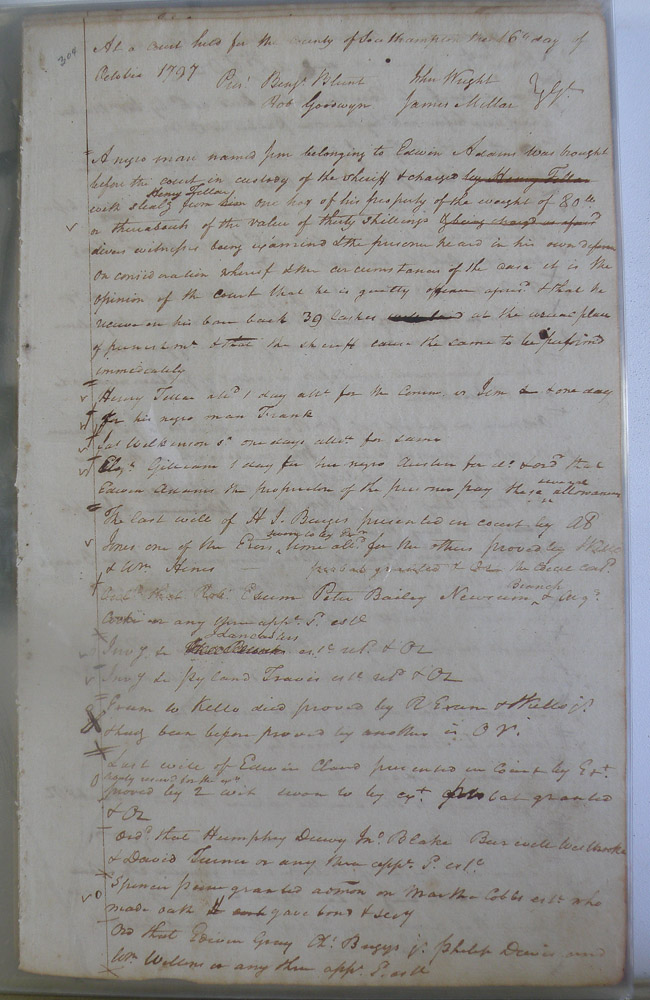 304
At a court held for the county of Southampton the 16th day of
October 1797 Pres. Benj. Blunt John Wright
Rob Goodwyn James Millar
A negro man named Jim belonging to Edwin Adams was brought
before the court in custody of the Sheriff & charged by Henry Tellar
Henry Tellar
with stealg from him one hog of his property of the weight of 80 lb
or thereabouts of the value of thirty shillings & being charged as afores
divers witnesses being examined & the prisoner heard in his own defence
on consideration whereof & the circumstances of the case it is the
opinion of the court that he is guilty afores & that he
receive on his bare back 39 lashes at the usual place
of punishmt & that the sheriff cause the same to be performed
immediately
Henry Tellar 1 day for the Comm v Jim & one day
for his negro man Frank
Jas Wilkinson Sr one days for same
Gilliam 1 day for her negro Austin for do & ord that
several
Edwin Adams the proprietor of the prisoner pay these allowances
The last will of H J Burges presented in court by AB
sworn to by
Jones one of the Exors for the others proved by
& Wm Hines probat granted & Or
Branch
ord that Rob Exum Peter Bailey Newsum & Aug
Cooke or any three app. est
Lancasters
Invy &c est ret & Or
Invy &c Ryland Travis est ret & Or
Exum to Kello died proved by R Exum & Kello jr
& havg been before proved by another is O r.
Last will of Edwin Claud presented in Court by Ext.
proved by 2 wit sworn to by ext. probat granted
& Or
Ord that Humphry Drewry Jno Blake Burwell
& David Turner or any three app. est
Spencer granted admon on Martha Cobbs est who
made oath gave bond & secy
Ord that Edwin Gray Ch. Briggs jr Philip Davis and
Wm Wellons or any three app. est